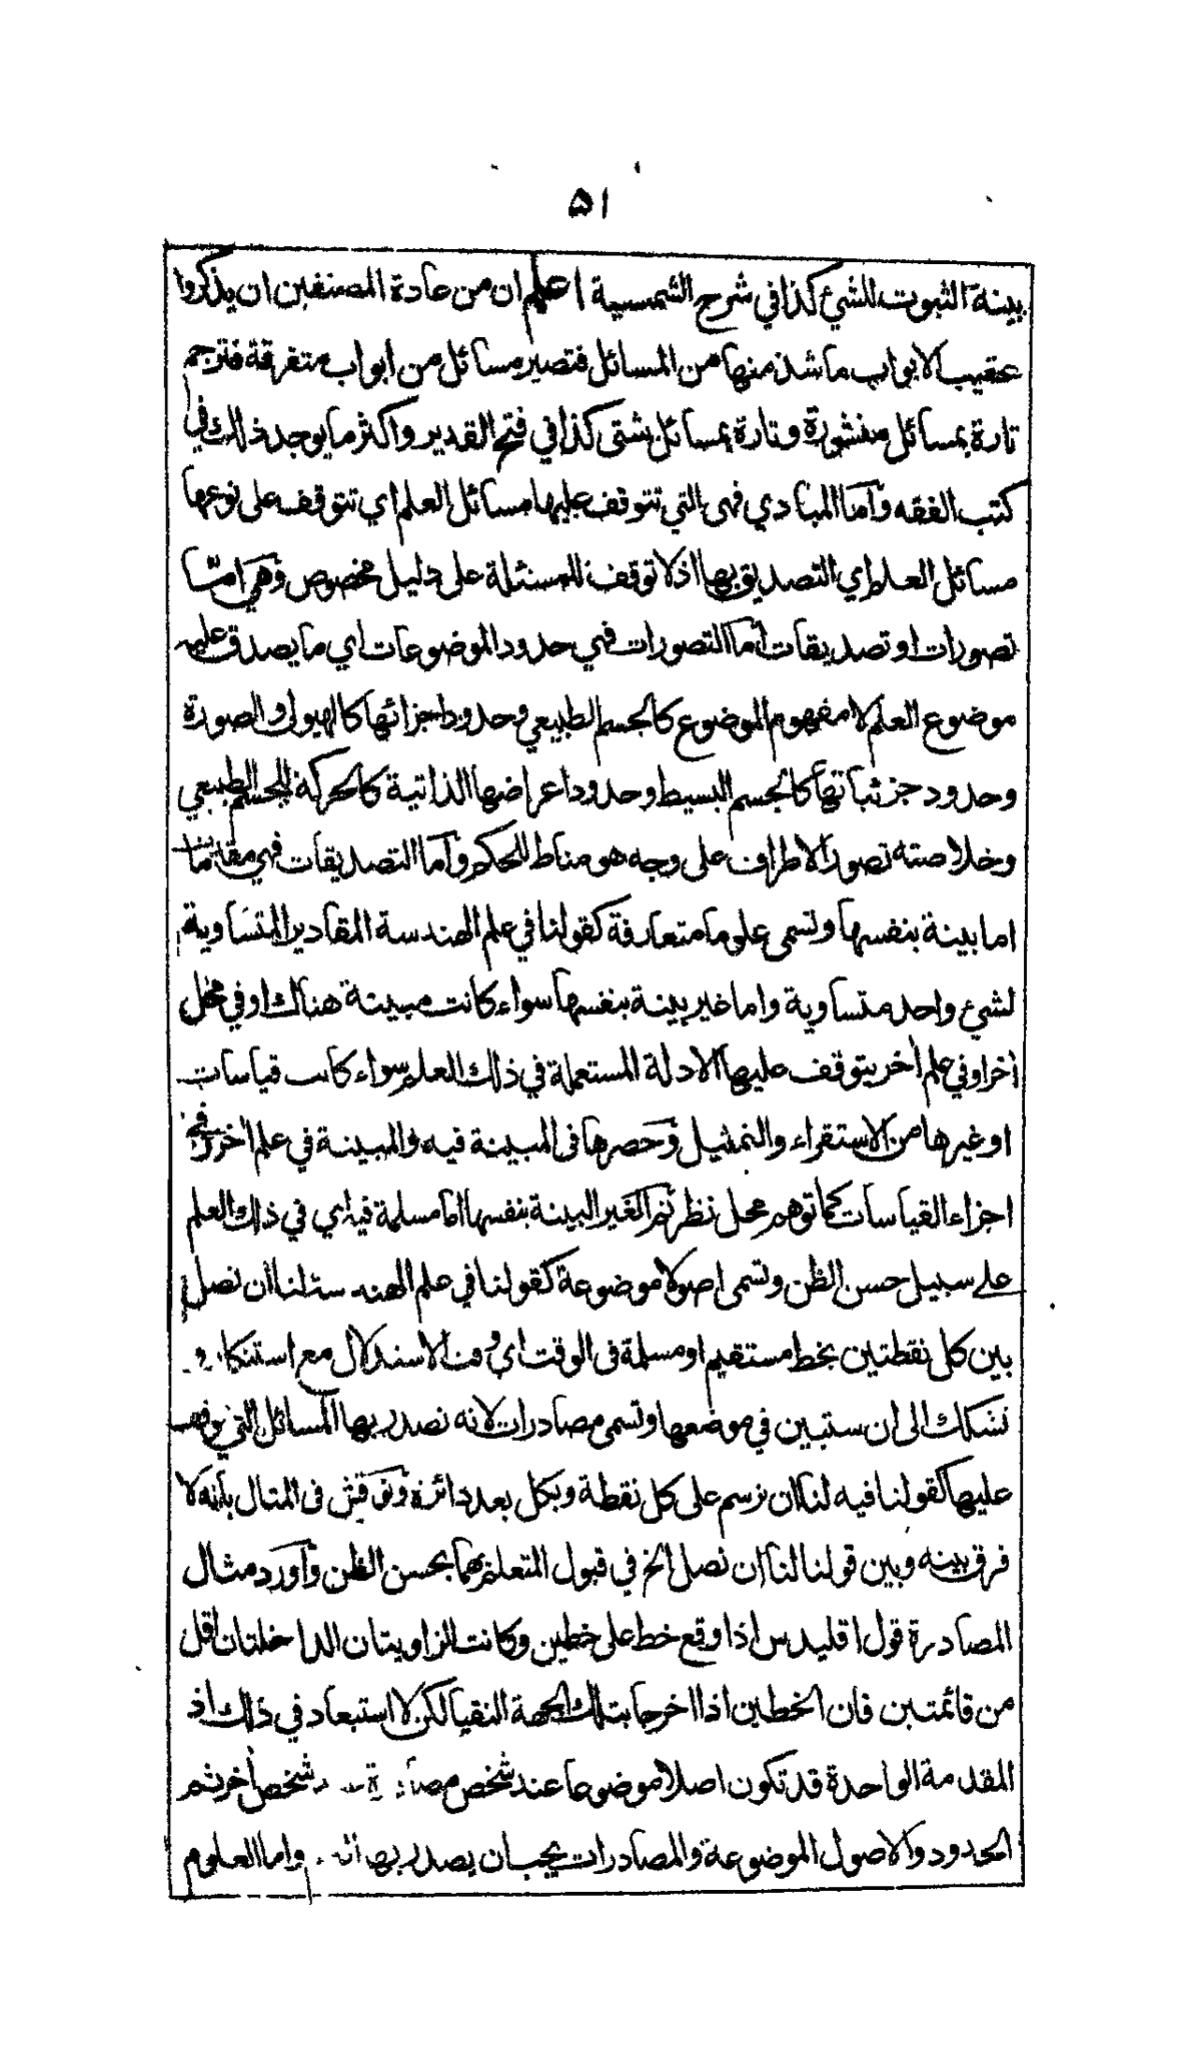 ۵۱
بينة الثبوت للشيء كذا في شرح الشمسية اعلم ان من عادة المصنفين ان يذكروا
عقيب الابواب ما شذ منها من المسائل فتصير مسائل من ابواب متفرقة فترجم
تارة بمسائل منثورة وتارة بمسائل شتى كذا في فتح القدير واكثر ما يوجد ذلك في
كتب الفقه واما المبادي فهى التي تتوقف عليها مسائل العلم اي تتوقف على نوعها
مسائل العلم اي التصديق بها اذ لا توقف للمسئلة على دليل مخصوص وهي امّا
تصورات او تصديقات اما التصورات فهي حدود الموضوعات اي ما يصدق عليه
موضوع العلم لا مفهوم الموضوع كالجسم الطبيعي وحدود اجزائها كالهيولى والصورة
وحدود جزئياتها كالجسم البسيط وحدود اعراضها الذاتية كالحركة للجسم الطبيعي
وخلاصته تصور الاطراف على وجه هو مناط للحكم واما التصديقات فهي مقدمات
اما بينة بنفسها وتسمى علوما متعارفة كقولنا في علم الهندسة المقادير المتساوية
لشيء واحد متساوية واما غير بينة بنفسها سواء كانت مبينة هناك او في محل
آخر او في علم آخر يتوقف عليها الادلة المستعملة في ذلك العلم سواء كانت قياسات
او غيرها من الاستقراء والتمثيل وحصرها فى المبينة فيه والمبينة في علم آخر وفي
اجزاء القياسات كما توهم محل نظر ثم الغير البينة بنفسها اما مسلمة فيه اي في ذلك العلم
على سبيل حسن الظن وتسمى اصولا موضوعة كقولنا في علم الهندسة لنا ان نصل
بين كل نقطتين بخط مستقيم او مسلمة فى الوقت اي وقت الاستدلال مع استنكار و
تشكك الى ان ستبين في موضعها وتسمى مصادرات لانه تصدر بها المسائل التي توقف
عليها كقولنا فيه لنا ان نرسم على كل نقطة وبكل بعد دائرة ونوقش فى المثال بانه لا
فرق بينه وبين قولنا لنا ان نصل الخ في قبول المتعلم بهما بحسن الظن واورد مثال
المصادرة قول اقليدس اذا وقع خط على خطين وكانت الزاويتان الداخلتان اقل
من قائمتين فان الخطين اذا اخرجا بتلك الجهة التقيا لكن لا استبعاد في ذلك اذ
المقدمة الواحدة قد تكون اصلا موضوعا عند شخص شخص آخر ثم
الحدود والاصول الموضوعة والمصادرات يجب ان يصدر بها واما العلوم